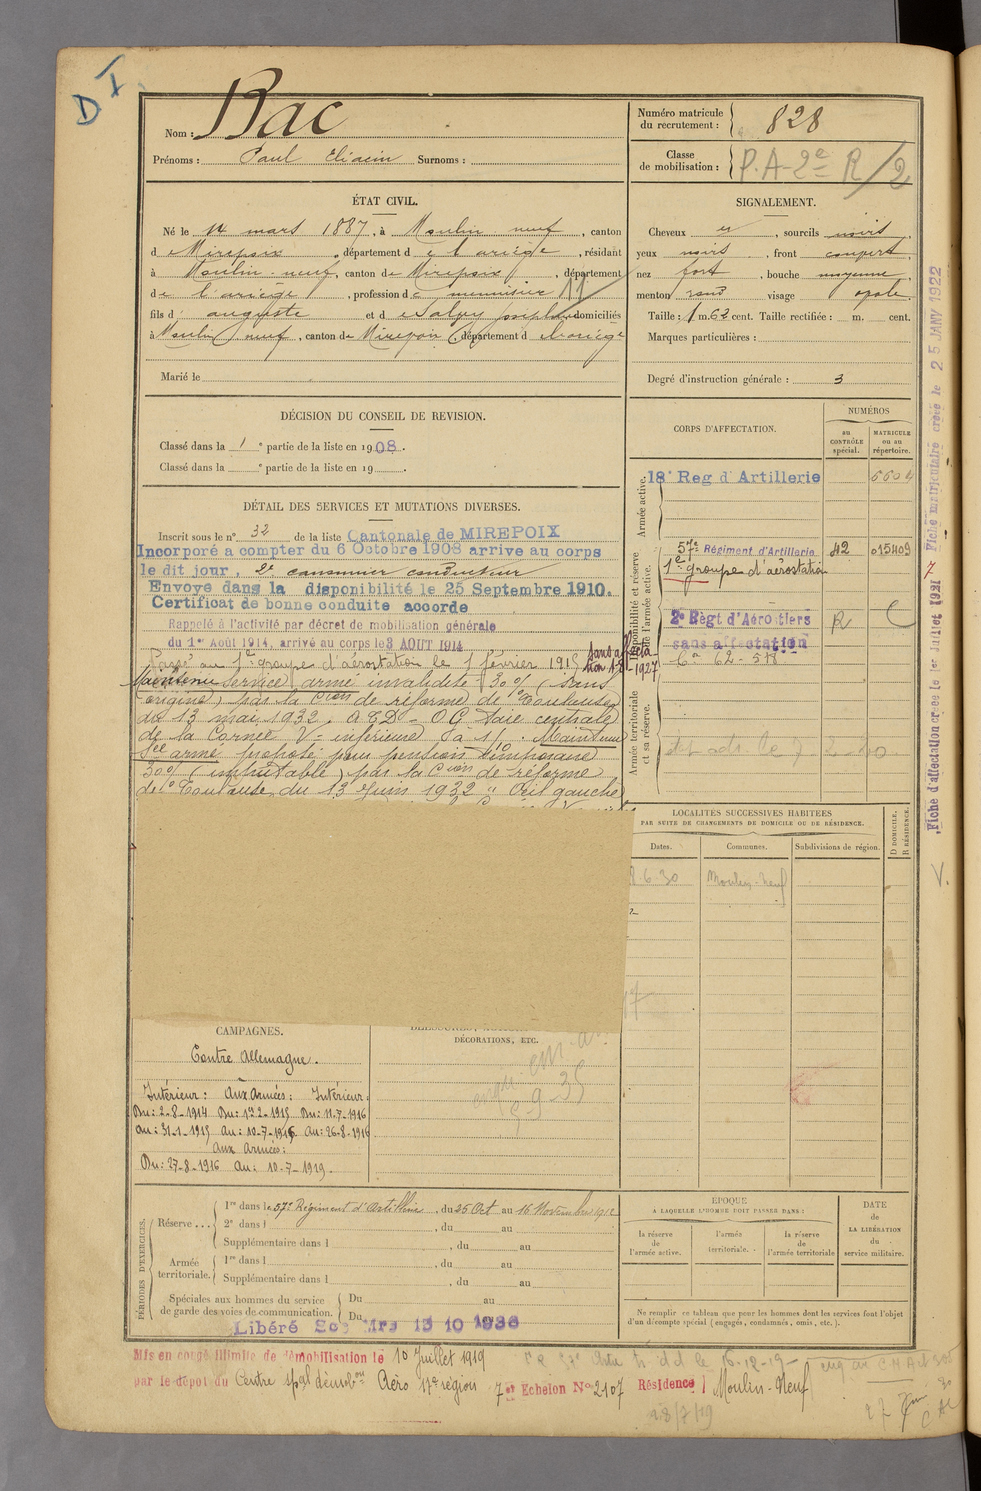 D I
Nom : Bac
Prénoms : Paul Eliacin Surnoms :
Numéro matricule du recrutement : 828
Classe de mobilisation : P.A-2e R/2
ÉTAT CIVIL.
Né le 14 mars 1887, à Moulin neuf, canton
d Mirepoix, département de l'ariège, résidant
à Moulin-neuf, canton de Mirepoix, département
de l'ariège, profession de menuisier 11
fils d'auguste et d domiciliés
à Moulin neuf, canton de Mirepoix, département d
Marié le
SIGNALEMENT.
Cheveux et, sourcils noirs,
yeux noirs, front couvert,
nez fort, bouche moyenne,
menton rond visage
Taille : 1 m. 62 cent. Taille rectifiée : m. cent.
Marques particulières :
Degré d'instruction générale : 3
DÉCISION DU CONSEIL DE REVISION.
Classé dans la 1 e partie de la liste en 1908.
Classé dans la e partie de la liste en 19 .
DÉTAIL DES SERVICES ET MUTATIONS DIVERSES.
Inscrit sous le n° 32 de la liste Cantonale de MIREPOIX
Incorporé a compter du 6 Octobre 1908 arrive au corps
le dit jour, 2e canonnier conducteur
Envoyé dans la disponibilité le 25 Septembre 1910.
Certificat de bonne conduite accorde
Rappelé à l'activité par décret de mobilisation générale
du 1er Août 1914, arrivé au corps le 3 AOUT 1914
Passé au 1er groupe d'aérostation le 1 février 1915
sans affectation 1-8-1927
Maintenu service armé invalidité 30% (sans
origine) par la Cion de réforme de Toulouse
du 13 mai 1932. Taie centrale
de la Cornée V = inférieure à 1/10. Maintenu
Sce armé proposé pour pension temporaire
30% (imputable) par la Cion de réforme
de Toulouse du 13 Juin 1932 "Œil gauche
CORPS D'AFFECTATION.
NUMÉROS
au CONTRÔLE spécial.
MATRICULE ou au répertoire.
Armée active.
18e Reg d'Artillerie
Disponibilité et réserve de l'armée active.
57me Régiment d'Artillerie 42 015409
1er groupe d'aérostation
2e Règt d'Aérostiers R C
sans affectation
Armée territoriale et sa réserve.
LOCALITÉS SUCCESSIVES HABITÉES
PAR SUITE DE CHANGEMENTS DE DOMICILE OU DE RÉSIDENCE.
Dates.
Communes.
Subdivisions de région.
D DOMICILE. R RÉSIDENCE.
6 30 Moulin-Neuf
CAMPAGNES.
Contre Allemagne.
Intérieur : Aux Armées : Intérieur :
Du : 2-8-1914 Du : 1er-2-1915 Du : 11-7-1916
au : 31-1-1915 au : 10-7-1916 au : 26-8-1916
aux armées :
Du : 27-8-1916 au : 10-7-1919.
DÉCORATIONS, ETC.
9-35
PÉRIODES D'EXERCICES.
Réserve ...
1re dans le 57e Régiment d'Artillerie, du 26 Oct au 16 Novembre
2e dans l , du au
Supplémentaire dans l , du au
Armée territoriale.
1re dans l , du au
Supplémentaire dans l , du au
Spéciales aux hommes du service de garde des voies de communication.
Du au
Du
Libéré
ÉPOQUE
A LAQUELLE L'HOMME DOIT PASSER DANS :
la réserve de l'armée active.
l'armée territoriale.
la réserve de l'armée territoriale
DATE de LA LIBÉRATION du service militaire.
Ne remplir ce tableau que pour les hommes dont les services font l'objet
d'un décompte spécial (engagés, condamnés, omis, etc.).
Mis en congé illimité de démobilisation le 10 Juillet 1919
par le dépôt du Centre spal démobon Aéro 17e région 7er Echelon No 2107 Résidence Moulin-Neuf
28/7/19
Fiche d'affectation créée le 1er Juillet 1921 Fiche matriculaire créée le 25 JANV 1922